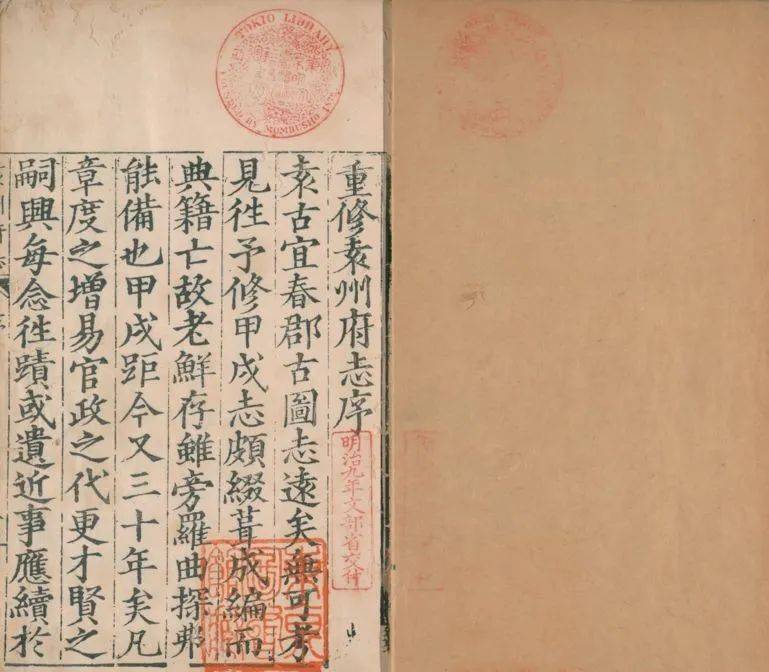 TOKIO LIBRARY
FOUNDED BY MOMBUSHO 1872
重修袁州府志序
明治九年文部省交付
袁古宜春郡古圖志遠矣無可考
見徃予修甲戌志頗綴葺成編而
典籍亡故老鮮存雖旁羅曲探弗
能備也甲戌距今又三十年矣凡
章度之增易官政之代更才賢之
嗣興每念徃蹟或遺近事應續於